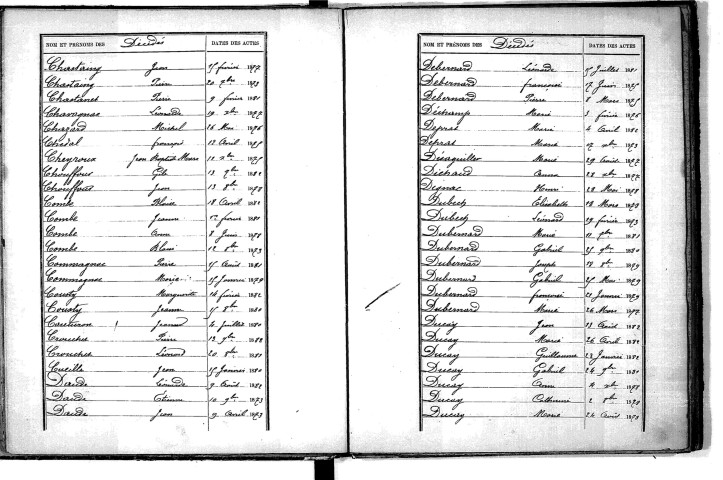 NOM ET PRÉNOMS DES Décédés DATES DES ACTES
Chastaing Jean 15 février 1877
Chastaing Pierre 20 9bre 1873
Chastanet Pierre 9 février 1881
Léonarde 19 1877
Chazard Michel 26 Mai 1876
Chézal françois 12 Avril 1875
Cheyroux Jean Baptiste 1875
Chouffour 13 1881
Chouffour Jean 13 8bre 1878
Combe Blaise 18 Avril 1881
Combe Jeanne 12 février 1881
Combe 8 Juin 1878
Combe 12 8bre 1873
Commagnac Marie 15 Août 1881
Commagnac 15 Janvier 1880
Cousty Marguerite 14 février 1882
Cousty Jeanne 15 8bre 1880
4 Juillet 1880
Crouchet Pierre 13 9bre 1882
Crouchet Léonard 20 8bre 1881
Cucille Jean 15 Janvier 1880
Daude Léonarde 9 Avril 1882
Daude Étienne 10 9bre 1873
Daude Jean 9 Avril 1873
NOM ET PRÉNOMS DES Décédés DATES DES ACTES
Debernard Léonarde 15 Juillet 1881
Debernard françoise 17 Juin 1875
Debernard Pierre 8 Mars 1875
Déchamp Marie 3 février 1876
Deprat Marie 4 Avril 1881
Deprat Marie 1873
Désaguiller Marie 29 Août 1882
Anna 28 1877
Dignac Henri 28 Mai 1878
Dubech Elisabeth 13 Mars 1873
Dubech Léonard 19 février 1873
Dubernard Marie 11 9bre 1881
Dubernard Gabriel 25 9bre 1880
Dubernard Joseph 18 8bre 1879
Dubernard Gabriel 25 Mai 1879
Dubernard françoise 21 Janvier 1879
Dubernard Marie 26 Mars 1877
Ducay Jean 13 Avril 1882
Ducay Marie 24 Avril 1881
Ducay Guillaume 23 Janvier 1881
Ducay Gabriel 24 9bre 1880
Ducay Anne 1878
Ducay Catherine 2 8bre 1870
Ducay Marie 24 Avril 1870